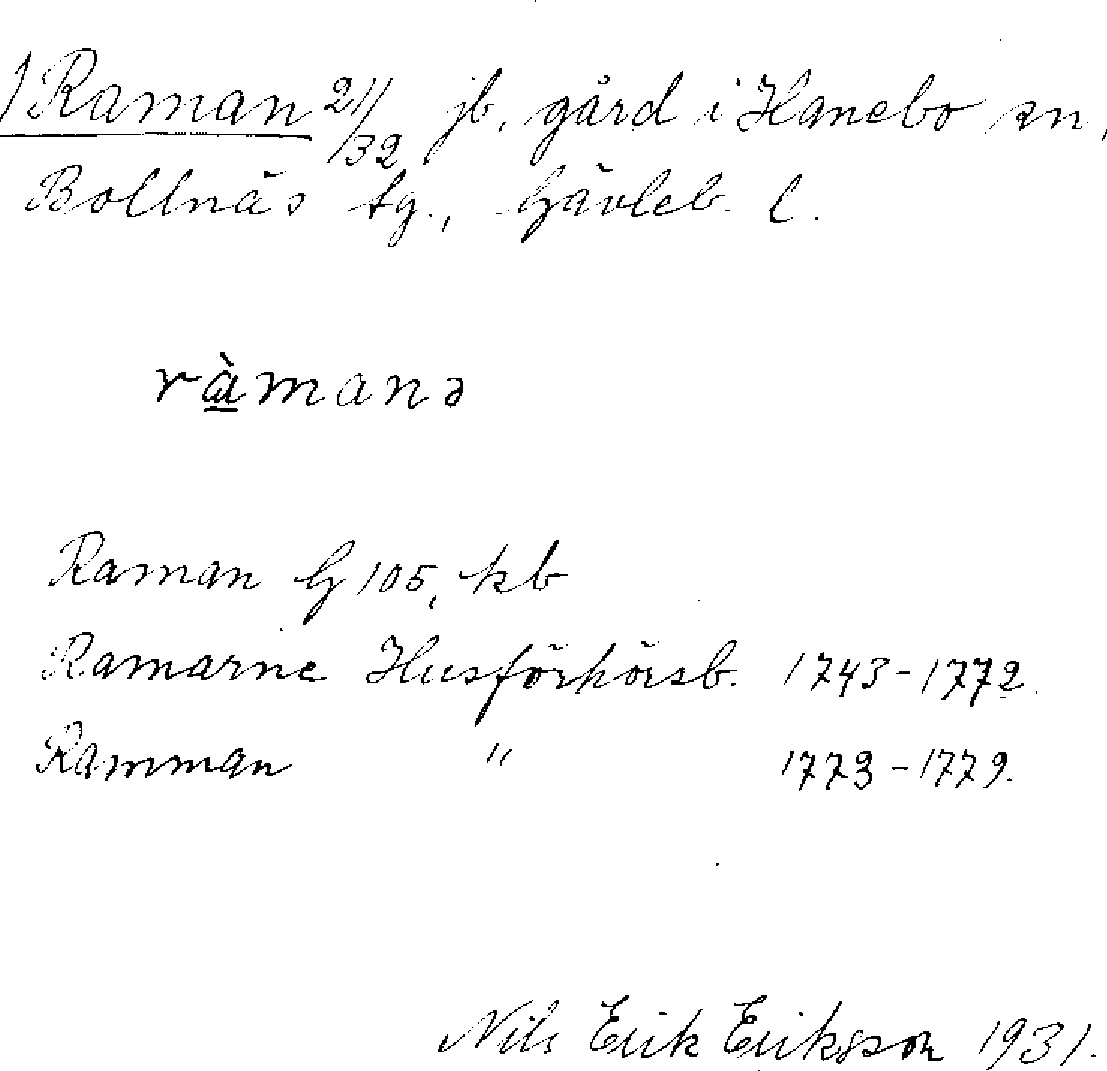 1 Raman 21/32 jb. gård i Hanebo sn,
Bollnäs tg., Gävleb. l.
ràmanə
Raman G 105, kb
Ramarne Husförhörsb. 1743-1772.
Ramman " 1773-1779.
Nils Erik Eriksson 1931.